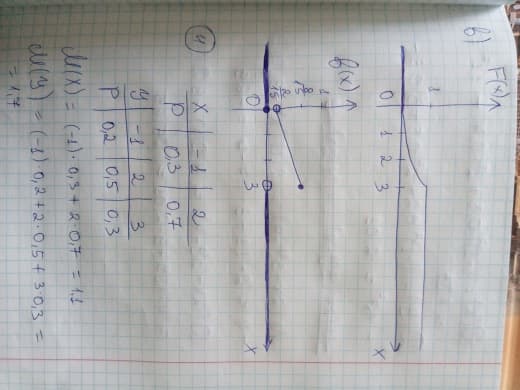 б) F(x)
1
0 1 2 3 x
f(x)
1
8/15
2/15
0 3 x
4)
X | -1 | 2
p | 0,3 | 0,7
y | -1 | 2 | 3
p | 0,2 | 0,5 | 0,3
M(x) = (-1)·0,3 + 2·0,7 = 1,1
M(y) = (-1)·0,2 + 2·0,5 + 3·0,3 =
= 1,7